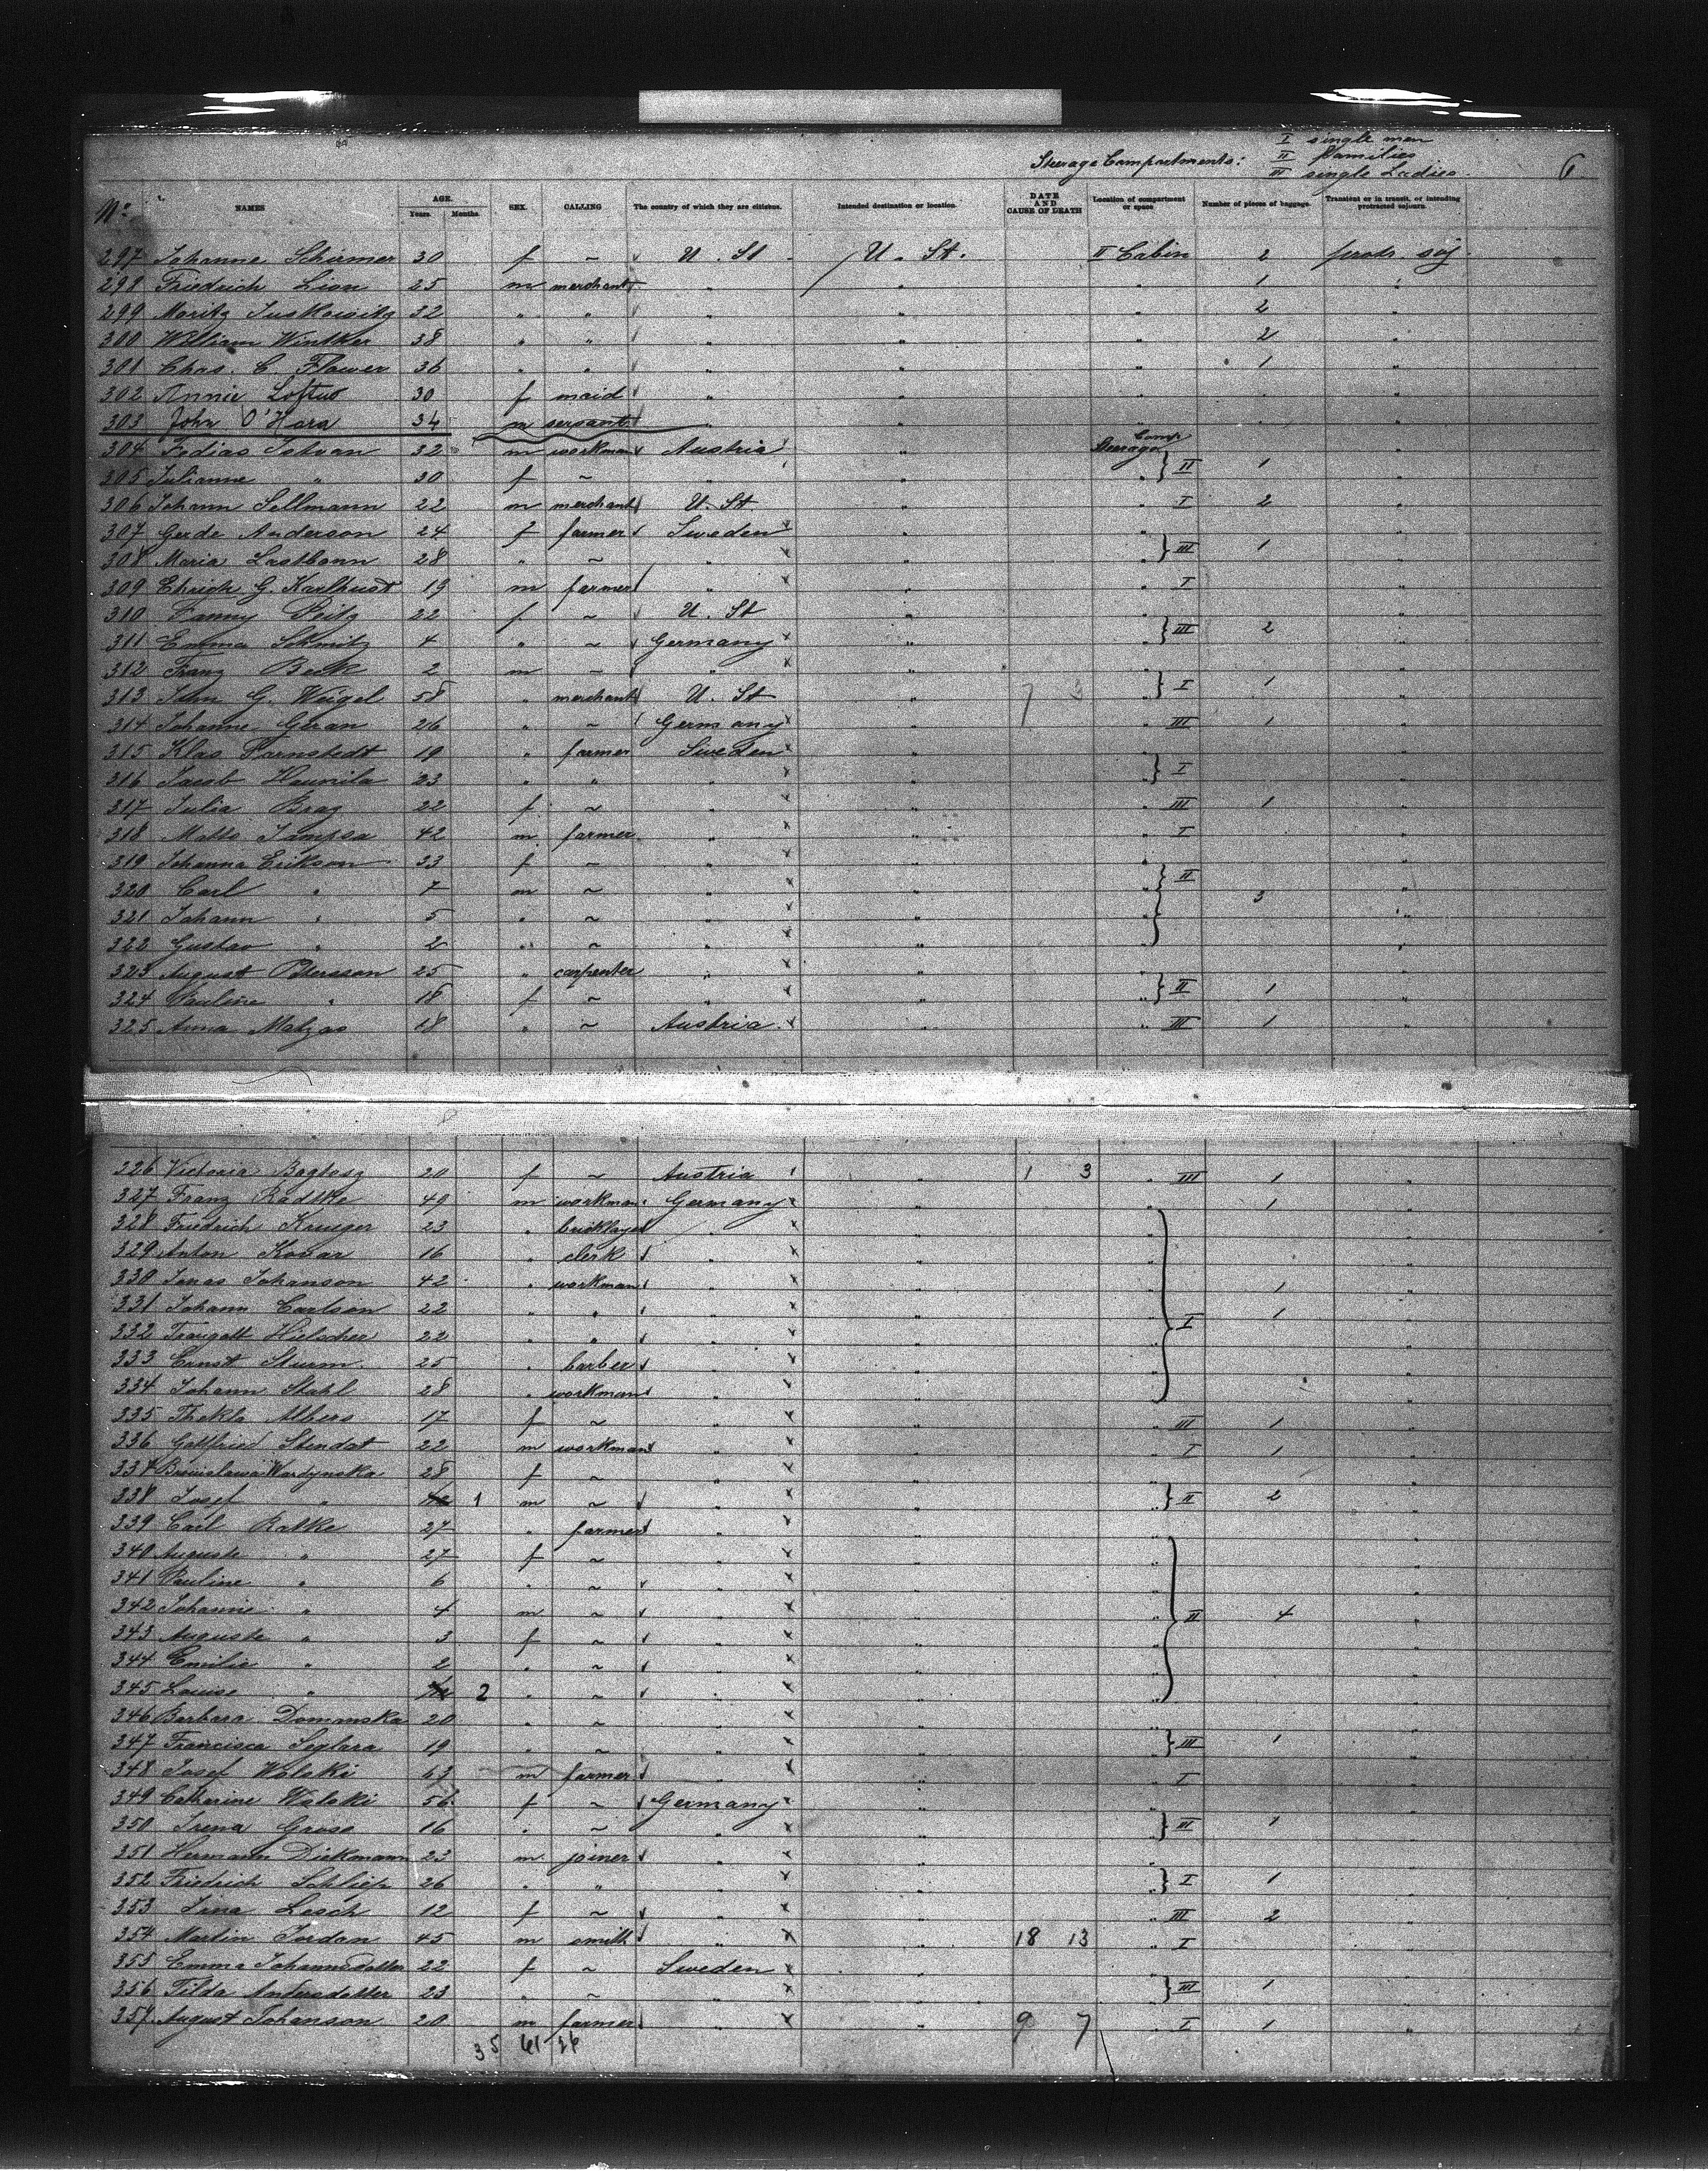 I single men
Steerage Compartments: II Families 6
III single Ladies.
No. NAMES AGE. Years. Months. SEX. CALLING The country of which they are citizens. Intended destination or location. DATE AND CAUSE OF DEATH Location of compartment or space Number of pieces of baggage. Transient or in transit, or intending protracted sojourn.
297 Johanne Schirmer 30 f ~ U. St U. St. II Cabin 2 protr. soj.
298 Friedrich Lion 25 m merchant " " " 1 "
299 Moritz Juskowitz 32 " " " " " 2 "
300 William Wintker 38 " " " " " 2 "
301 Chas. C. Flower 36 " " " " " 1 "
302 Annie Loftus 30 f maid " " " " "
303 John O'Hara 34 m servant " " " " "
304 Fedias Istvan 32 m workman Austria " Steerage Comp
305 Julianne " 30 f ~ " " " } II 1 "
306 Johann Sellmann 22 m merchant U. St " " I 2 "
307 Gerde Anderson 24 f farmer Sweden "
308 Maria Lastbonn 28 " ~ " " " } III 1 "
309 Ehrich G. Karlquist 19 m farmer " " " I "
310 Fanny Peitz 22 f ~ U. St "
311 Emma Schmitz 4 " ~ Germany " " } III 2 "
312 Franz Beck 2 m ~ " "
313 John G. Weigel 58 " merchant U. St " " } I 1 "
314 Johanne Geran 26 " ~ Germany " " III 1 "
315 Klas Farnstedt 19 " farmer Sweden "
316 Jacob Haunila 23 " " " " " } I "
317 Julia Brag 22 f ~ " " " III 1 "
318 Matts Jampsa 42 m farmer " " " I "
319 Johanna Erikson 33 f ~ " " "
320 Carl " 7 m ~ " " " } II 3 "
321 Johann " 5 " ~ " " " "
322 Gustav " 2 " ~ " " " "
323 August Petersson 25 " carpenter " " "
324 Pauline " 18 f ~ " " " } II 1 "
325 Anna Matzas 18 " ~ Austria " " III 1 "
326 Victoria Bagtosz 20 f ~ Austria " 1 3 " III 1 "
327 Franz Radtke 49 m workman Germany " 1 "
328 Friedrich Krueger 23 " bricklayer " " "
329 Anton Kovar 16 " clerk " " "
330 Jonas Johanson 42 " workman " " 1 "
331 Johann Carlson 22 " " " " } I 1 "
332 Traugott Hielscher 22 " " " " "
333 Ernst Sturm 25 " barber " " "
334 Johann Stahl 28 " workman " " "
335 Thekla Albers 17 f ~ " " " III 1 "
336 Gottfried Stendat 22 m workman " " " I 1 "
337 Bronislawa Wardynska 28 f ~ " " "
338 Josef " 1 m ~ " " " } II 2 "
339 Carl Ratke 27 " farmer " " "
340 Auguste " 27 f ~ " " " "
341 Pauline " 6 " ~ " " " "
342 Johann " 4 m ~ " " " } II 4 "
343 Auguste " 3 f ~ " " " "
344 Emilie " 2 " ~ " " " "
345 Louise " 2 " ~ " " " "
346 Barbara Domanska 20 " ~ " " " "
347 Francisca Seglara 19 " ~ " " " } III 1 "
348 Josef Wolski 63 m farmer " " " I "
349 Catherine Wolski 56 f ~ Germany " "
350 Irena Grosc 16 " ~ " " " } III 1 "
351 Hermann Diekmann 23 m joiner " " "
352 Friedrich Schliep 26 " " " " " } I 1 "
353 Lina Lesch 12 f ~ " " " III 2 "
354 Martin Jordan 45 m smith " " 18 13 " I "
355 Emma Johannsdatter 22 f ~ Sweden " "
356 Tilda Andersdatter 23 " ~ " " " } III 1 "
357 August Johanson 20 m farmer " " 9 7 " I 1 "
35 61 26